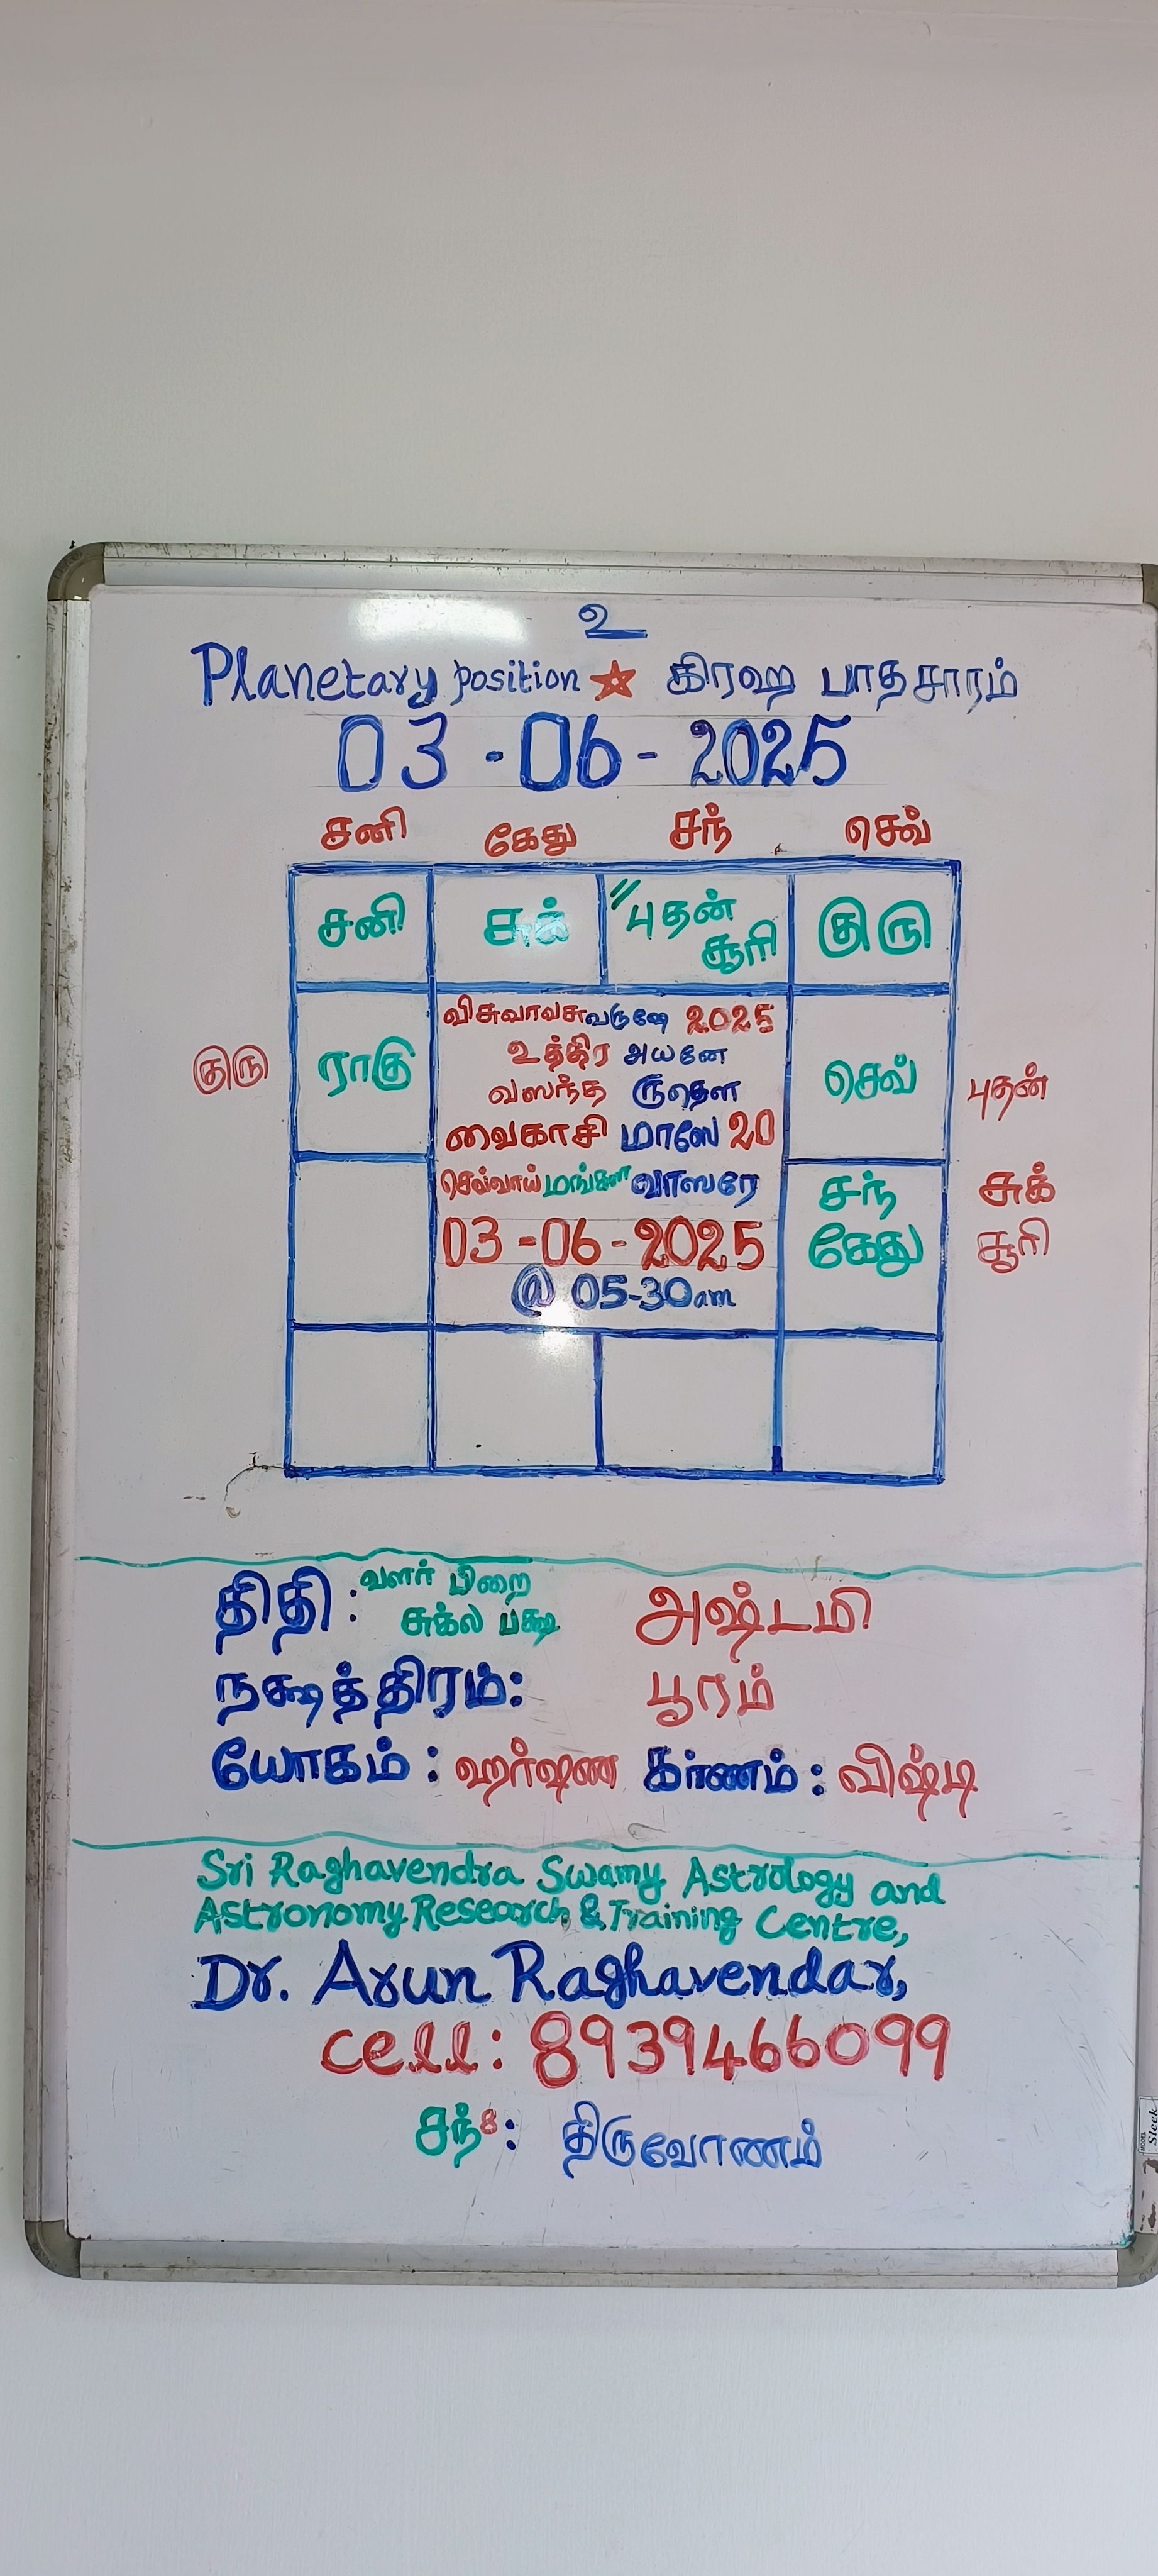 உ
Planetary position ★ கிரஹ பாதசாரம்
03-06-2025
சனி கேது சந் செவ்
சனி சுக் "புதன் சூரி குரு
விசுவாவசுவருஷே 2025
உத்திர அயனே
குரு ராகு வஸந்த ருதௌ செவ் புதன்
வைகாசி மாஸே 20
செவ்வாய் மங்கள வாஸரே சந் சுக்
03-06-2025 கேது சூரி
@ 05-30am
திதி : வளர் பிறை அஷ்டமி
சுக்ல பக்ஷ
நக்ஷத்திரம்: பூரம்
யோகம் : ஹர்ஷண கர்ணம் : விஷ்டி
Sri Raghavendra Swamy Astrology and
Astronomy Research & Training Centre,
Dr. Arun Raghavendar,
cell: 8939466099
சந்8: திருவோணம்
MODEL Sleek